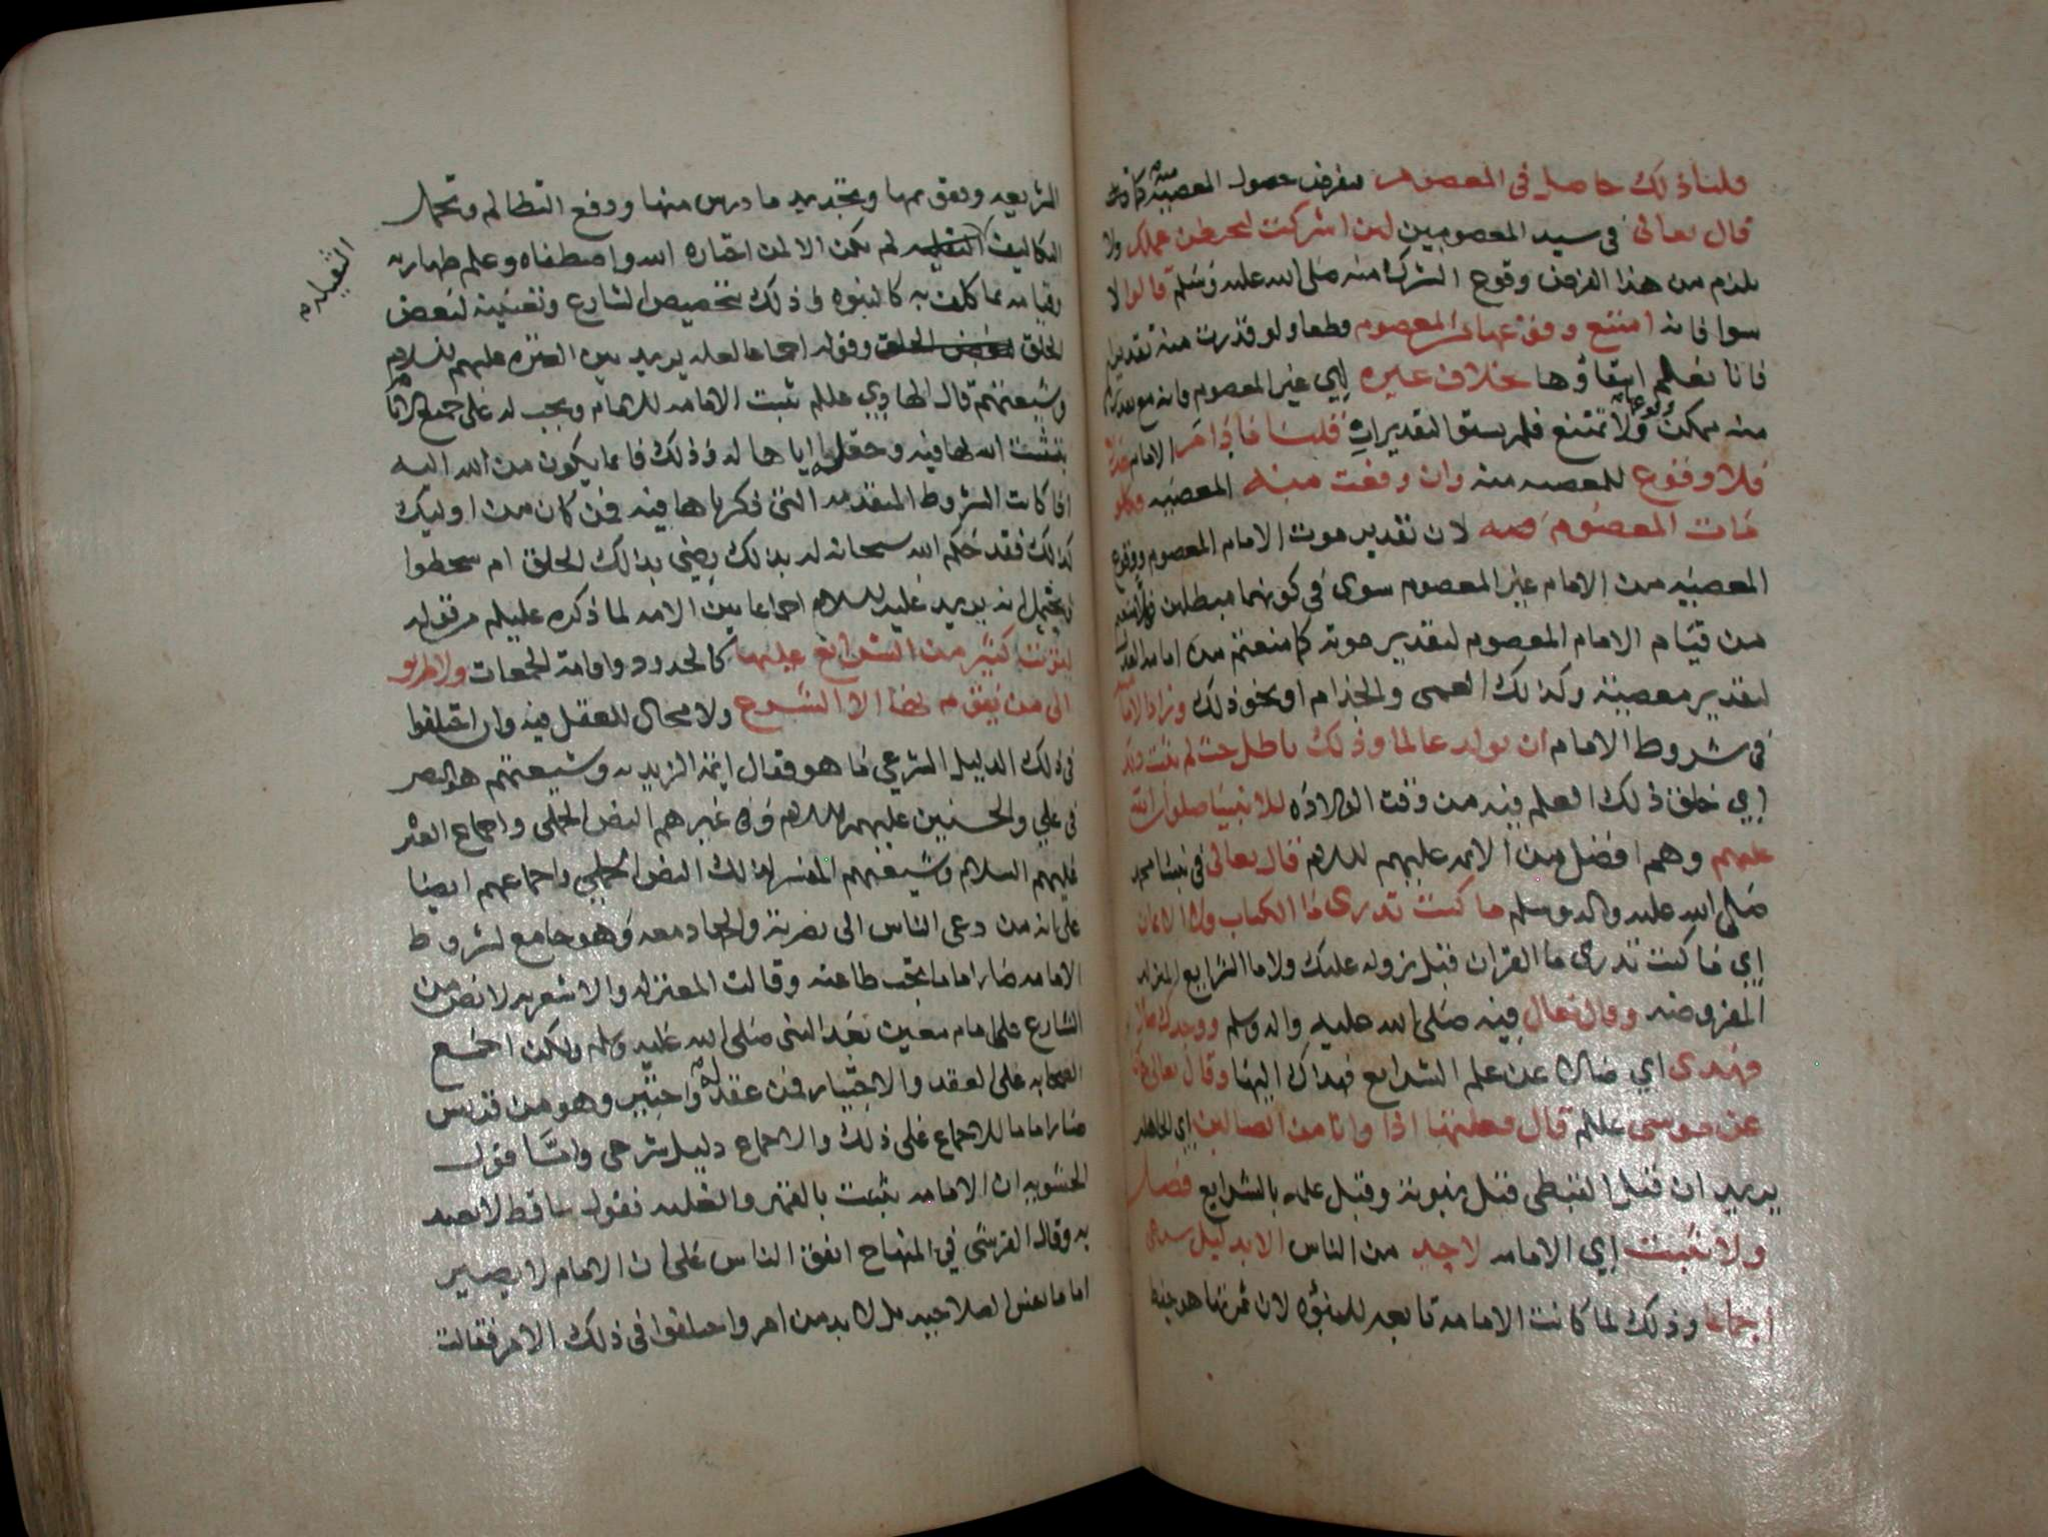 قلنا ذلك حاصل في المعصوم بفرض حصول المعصية منه
قال تعالى في سيد المعصومين لئن اشركت ليحبطن عملك ولا
يلزم من هذا الفرض وقوع الشرك منه صلى الله عليه وسلم قالوا لا
سوا فانه امتنع وقوعها من المعصوم قطعا ولو قدرت منه تقديرا
فانا نعلم انتفاؤها بخلاف غيره اي غير المعصوم فانه مع
منه يمكن وقوعها ولا تمتنع فلم يستو التقديران قلنا فاذا الامام
فلا وقوع للمعصيه منه وان وقعت منه المعصيه فكلو
مات المعصوم لان تقدير موت الامام المعصوم ووقوع
المعصيه من الامام غير المعصوم سوى في كونهما مبطلين
من قيام الامام المعصوم لتقدير موته كما منعتم من امامه
لتقدير معصيته وكذلك العمى والجذام او نحو ذلك وزاد الاماميه
في شروط الامام ان يولد عالما وذلك باطل حيث لم يثبت
اي خلق ذلك العلم فيه من وقت الولاده للانبيا صلوات الله
عليهم وهم افضل من الائمه عليهم السلام قال تعالى في نبينا محمد
صلى الله عليه واله وسلم ما كنت تدري ما الكتاب ولا الايمان
اي ما كنت تدري ما القران قبل نزوله عليك ولا ما الشرايع
المفروضه وقال تعالى فيه صلى الله عليه واله وسلم ووجدك ضالا
فهدى اي ضالا عن علم الشرايع فهداك اليها وقال تعالى
عن موسى عليلم قال فعلتها اذا وانا من الضالين اي الجاهلين
يريد ان قتل القبطي قبل نبوته وقبل علمه بالشرايع فصل
ولا تثبت اي الامامه لاحد من الناس الا بدليل شرعي
اجماعا وذلك لما كانت الامامه تابعه للنبوه لان ثمرتها هو
الشريعه وتقويمها وتجديد ما درس منها ودفع التظالم وتحمل
التكاليف لم يكن الا لمن اختاره الله واصطفاه وعلم طهارته
الثقيله
وقيامه بما كلف به كالنبوه في ذلك تخصيص الشارع وتعيينه لبعض
الخلق وقوله اجماعا لعله يريد بين العتره عليهم السلام
وشيعتهم قال الهادي عللم تثبت الامامه للامام ويجب له على جميع الانام
بتثبيت الله لها فيه وجعله اياها له وذلك فانما يكون من الله اليه
اذا كانت الشروط المتقدمه التي ذكرناها فيه فمن كان من اوليك
كذلك فقد حكم الله سبحانه له بذلك رضي بذلك الخلق ام سخطوا
او يحتمل انه يريد عليه السلام اجماعا بين الامه لما ذكره عليلم من قوله
لترتب كثير من الشرايع عليها كالحدود واقامة الجمعات ولا طريق
الى من يقوم بها الا الشرع ولا مجال للعقل فيه وان اختلفوا
في ذلك الدليل الشرعي ما هو فقال ائمة الزيديه وشيعتهم هو النص
في علي والحسنين عليهم السلام وفي غيرهم النص الجملي واجماع العتر
عليهم السلام وشيعتهم المفسر لذلك النص الجملي واجماعهم ايضا
على انه من دعى الناس الى نصرته والجهاد معه وهو جامع لشروط
الامامه صار اماما تجب طاعته وقالت المعتزله والاشعريه لا نص من
الشارع على امام معين بعد النبي صلى الله عليه وسلم ولكن اجمع
الصحابه على العقد والاختيار فمن عقد له واختير وهو من قريش
صار اماما للاجماع على ذلك والاجماع دليل شرعي واما قول
الحشويه ان الامامه تثبت بالقهر والغلبه فقول ساقط لا يعتد
به وقال القرشي في المنهاج اتفق الناس على ان الامام لا يصير
اماما بنفس الصلاحيه بل لا بد من امر واختلفوا في ذلك الامر فقالت